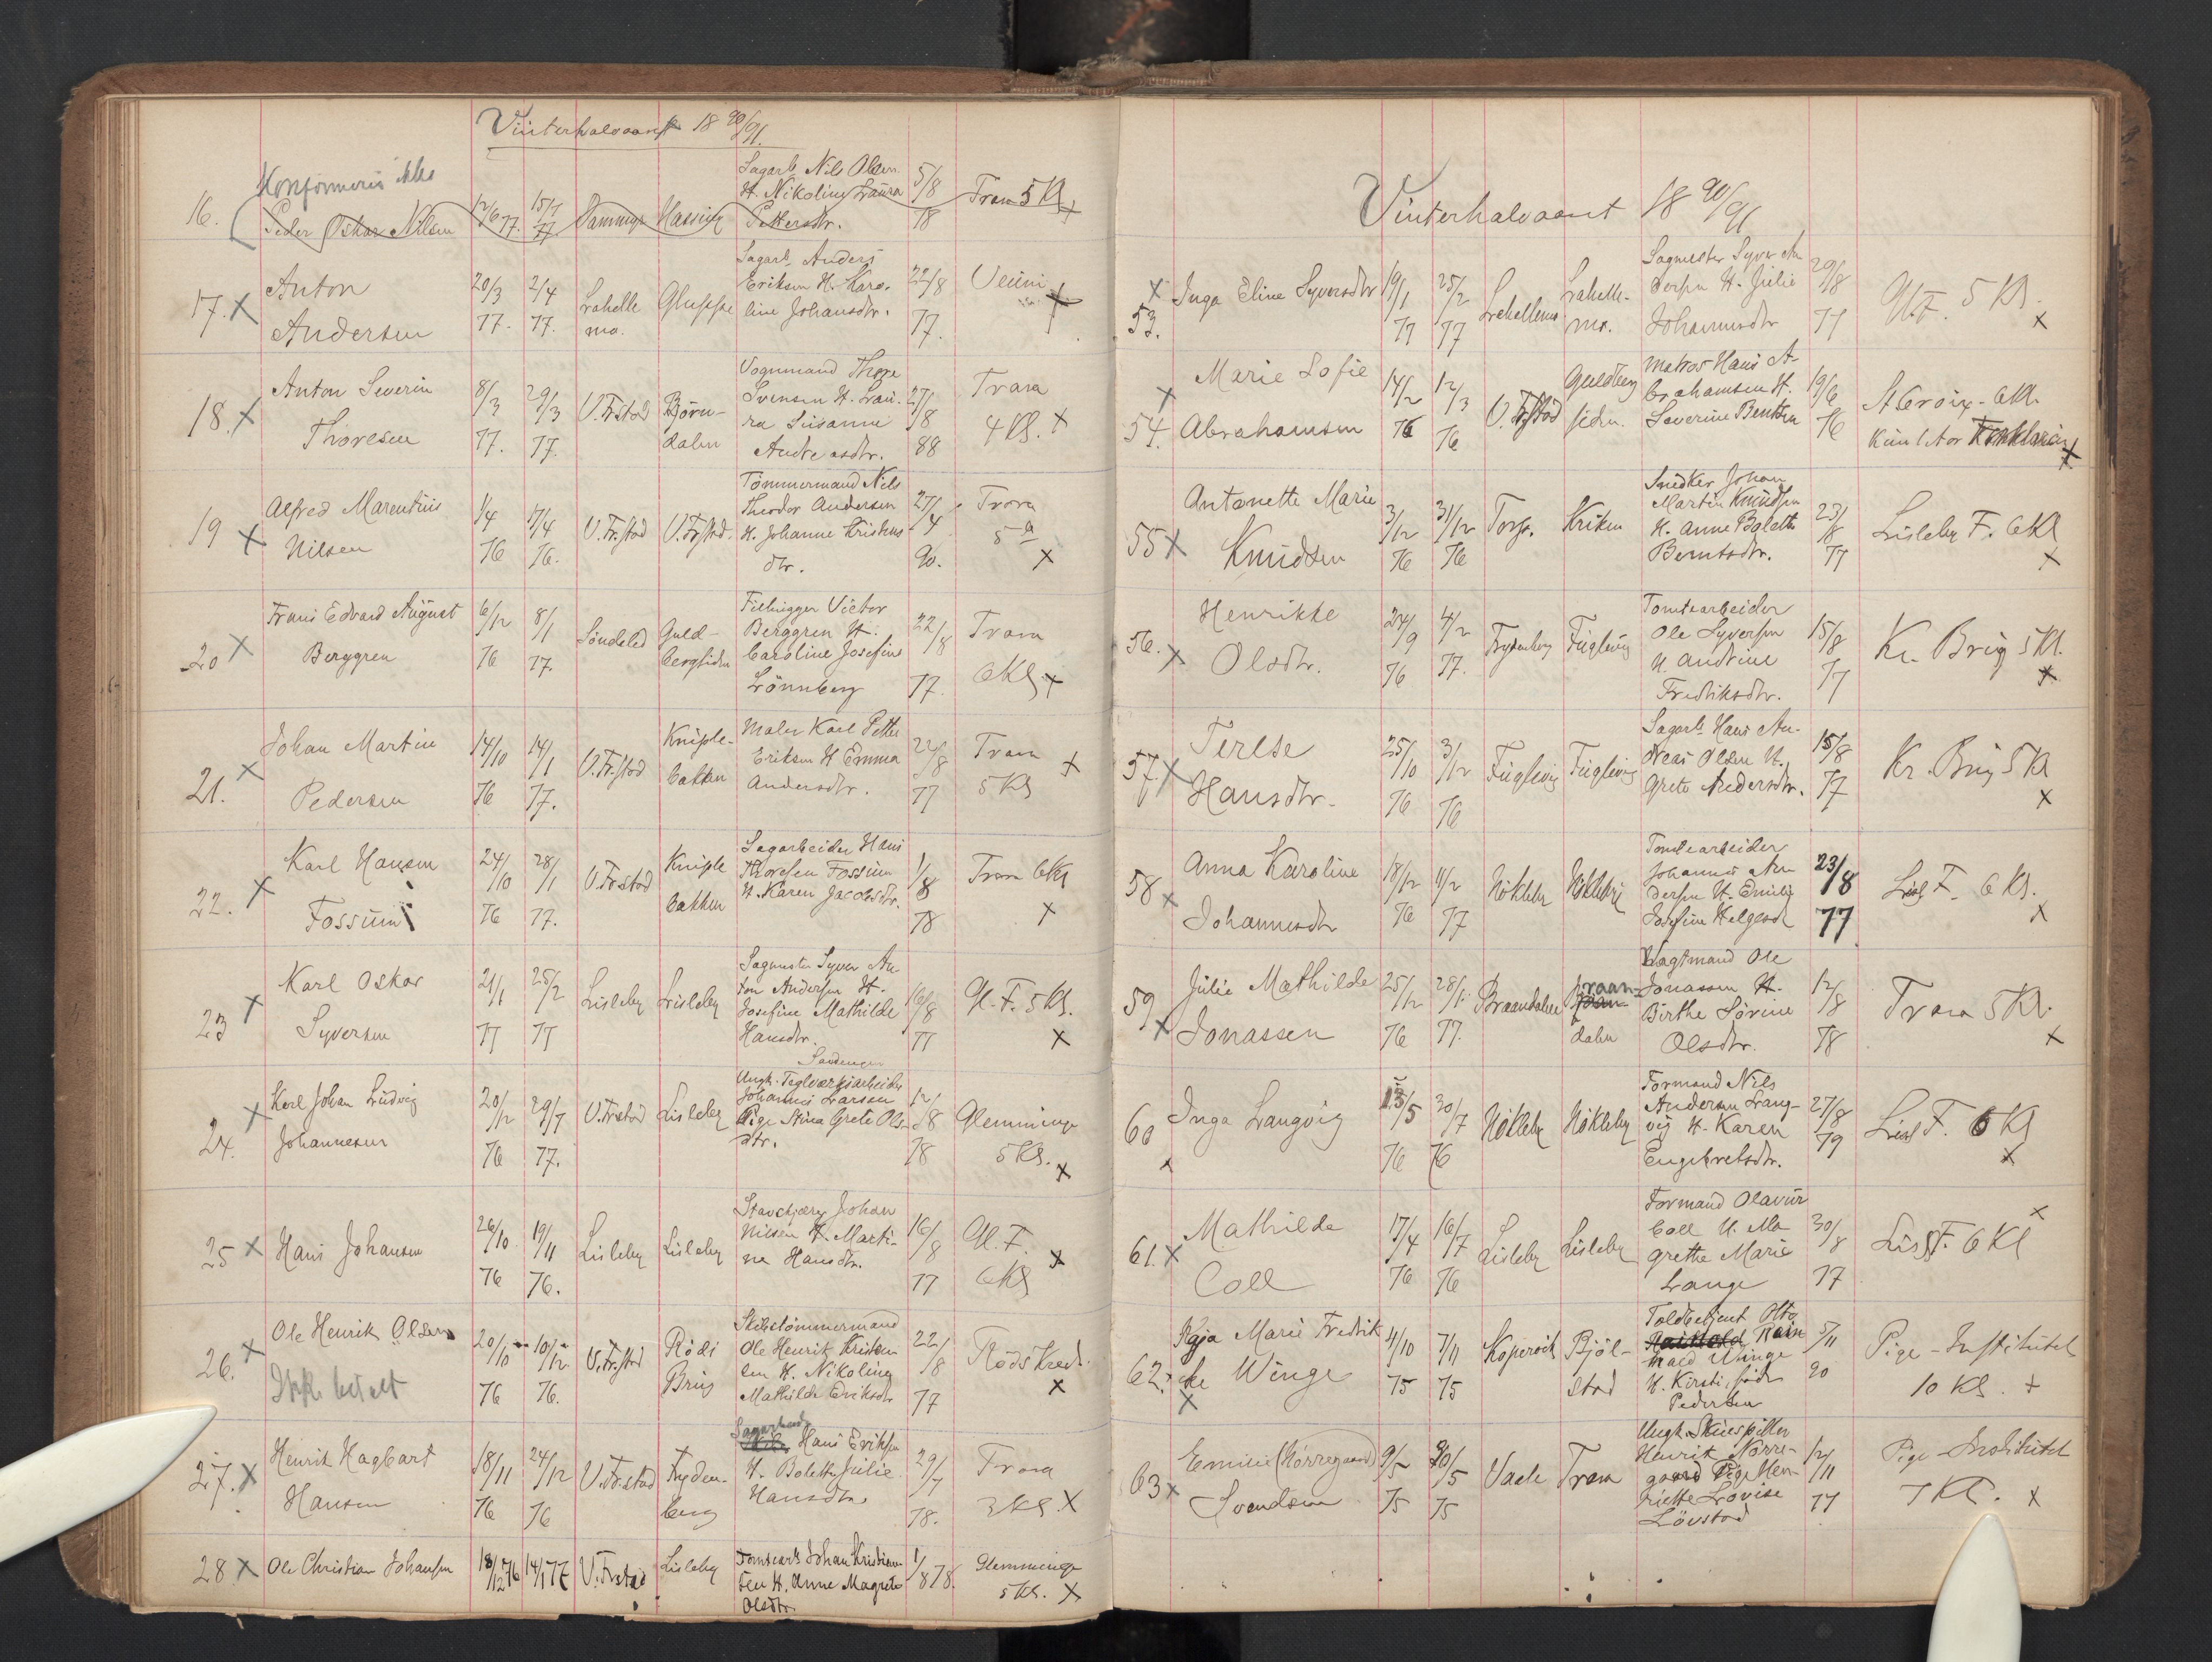 Vinterhalvaaret 18 90/91.
Konfirmeris ikke
16. Peder Oskar Nilsen 12/6 77. 15/7 77. Sagarb. Nils Olsen H. Nikoline Laura Pettersdtr. 5/8 78 Trara 5 Kl X
17. X Anton Andersen 20/3 77. 2/4 77. Lahelle mo. Gluppe Sagarb. Anders Eriksen H. Karoline Johansdtr. 22/8 77. X
18. X Anton Severin Thoresen 8/3 77. 29/3 77. V. Fr.stad Bjørndalen Vognmand Thore Svensen H. Laura Susanne Andreasdtr. 27/8 88 Trara 4 Kl. X
19 X Alfred Marentius Nilsen 1/4 76 17/4 76. V. Fr.stad V. Fr.stad. Tömmermand Nils Theodor Andersen H. Johanne Kristensdtr. 27/4 90. Trara 5 X
20 X Frans Edvard August Berggren 6/12 76 8/1 77. Söndeled Guldbergsiden Victor Berggren H. Caroline Josefine Lönnberg 22/8 77. Trara 6 Kl. X
21. X Johan Martin Pedersen 14/10 76 14/1 77. V. Fr.stad Kniplebakken Maler Karl Petter Eriksen H Emma Andersdtr. 22/8 77 Trara 5 Kl X
22. X Karl Hansen Fossum 24/10 76 28/1 77. V. Fr.stad Kniplebakken Sagarbeider Hans Thoresen Fossum H. Karen Jacobsdtr. 1/8 78 Trara 6 Kl X
23 X Karl Oskar Syversen 21/1 77 25/2 77 Lisleby Lisleby Sagmester Syver Anton Andersen H. Josefine Mathilde Hansdtr. 16/8 77 Gl. F. 5 Kl. X
24. X Karl Johan Ludvig Johannesen 20/12 76 29/7 77. V. Fr.stad Lisleby Ungk. Teglværksarbeider Johannes Larsen Pige Stina Grete Olsdtr. 12/8 78 Glemminge 5 Kl. X
25 X Hans Johansen 26/10 76 19/11 76. Lisleby Lisleby Johan Nilsen H. Martine Hansdtr. 16/8 77 Gl. F. 6 Kl X
26. X Ole Henrik Olsen 20/10 76 10/12 76. V. Fr.stad Rödi Brug Skibstömmermand Ole Henrik Kristensen H. Nikoline Mathilde Eriksdtr 22/8 77 Röds Kreds. X
Ikke betalt
27. X Henrik Hagbart Hansen 18/11 76 24/12 76 V. Fr.stad Frydenberg Sagarbeid. Hans Eriksen H. Bolette Julie Hansdtr. 29/7 78. Trara 3 Kl. X
28. X Ole Christian Johansen 18/12 76 14/1 77 V. Fr.stad Lisleby Tomtearb. Johan Kristiansen H. Anne Magrete Olsdtr. 1/8 78. Glemminge 5 Kl. X
Vinterhalvaaret 18 90/91
X 53. Inga Eline Syversdtr 19/1 77 25/2 77 Lahellemo Lahellemo. Sagmester Syver Andersen H. Julie Johannesdtr 29/8 77 Gl. F. 5 Kl. X
X 54. Marie Sofie Abrahamsen 14/2 76 12/3 76 V. Fr.stad Guldbergsiden. Matros Hans Abrahamsen H. Severine Bentsen 19/6 76 St Croix - 6 Kl. X
55 X Antonette Marie Knudsen 3/12 76 31/12 76 Torp. Kriken Snedker Johan Martin Knudsen H. Anne Bolette Berntsdtr. 23/8 77 Lisleby F. 6 Kl X
56. X Henrikke Olsdtr. 24/9 76 4/2 77. Frydenberg Fuglevig Tomtearbeider Ole Syversen H Andrine Fredriksdtr. 15/8 77 Kr. Brig 5 Kl. X
57. X Terese Hansdtr. 25/10 76 3/12 76 Fuglevig Fuglevig Sagarb. Hans Andreas Olsen H. Grete Andersdtr. 15/8 77 Kr. Brig 5 Kl X
58 X Anna Karoline Johannesdtr 18/12 76 11/2 77 Nökleby Nökleby Tomtearbeider Johannes Andersen H. Emilie Josefine Helgesd 23/8 77 Lisl F. 6 Kl. X
59 X Julie Mathilde Jonassen 25/12 76 28/1 77. Braandalen Braandalen Vagtmand Ole Jonassen H. Birthe Sörine Olsdtr. 12/8 78 Trara 5 Kl. X
60 X Inga Langvig 13/5 76 30/7 76 Nökleby Nökleby Formand Nils Andersen Langvig H. Karen Engebretsdtr. 27/8 79 Lisl F. 6 Kl X
61. X Mathilda Coll 17/4 76 16/7 76 Lisleby Lisleby Formand Olavur Coll H. Magrethe Marie Lange 30/8 77 Lisl F. 6 Kl X
62. X Kaja Marie Fredrikke Winge 4/10 75 7/11 75 Kopervik Bjölstad Toldbetjent Otto Rainhald Winge H. Kirsti Pedersen 5/11 90 Pige-Institutet 10 Kl. X
63 X Emilie (Nørregaard) Svendsen 9/5 75 30/5 75 Vaale Trara Ungk. Skuespiller Henrik Nørregaard Pige Henriette Lovise Lövstad 12/11 77 Pige-Institutet 7 Kl. X